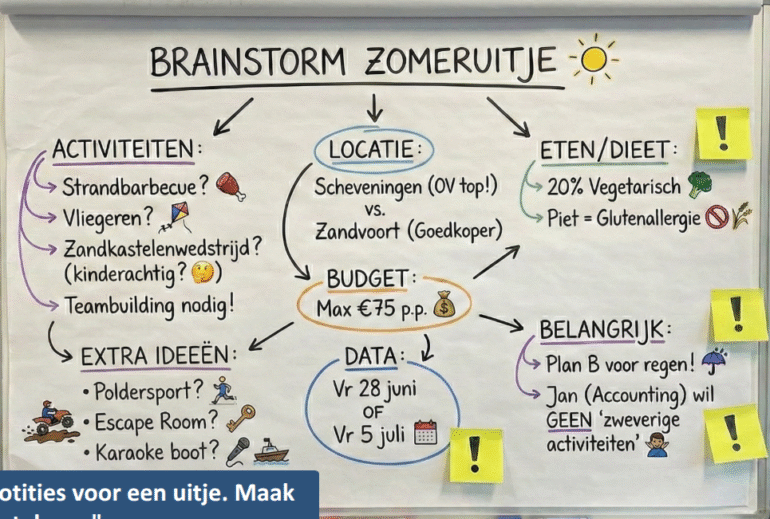 BRAINSTORM ZOMERUITJE
ACTIVITEITEN:
Strandbarbecue?
Vliegeren?
Zandkastelenwedstrijd?
(kinderachtig? )
Teambuilding nodig!
EXTRA IDEEËN:
• Poldersport?
• Escape Room?
• Karaoke boot?
LOCATIE:
Scheveningen (OV top!)
vs.
Zandvoort (Goedkoper)
BUDGET:
Max €75 p.p.
DATA:
Vr 28 juni
OF
Vr 5 juli
!
ETEN/DIEET:
!
20% Vegetarisch
Piet = Glutenallergie
BELANGRIJK:
!
Plan B voor regen!
Jan (Accounting) wil
GEEN 'zweverige
activiteiten'
!
voor een uitje. Maak